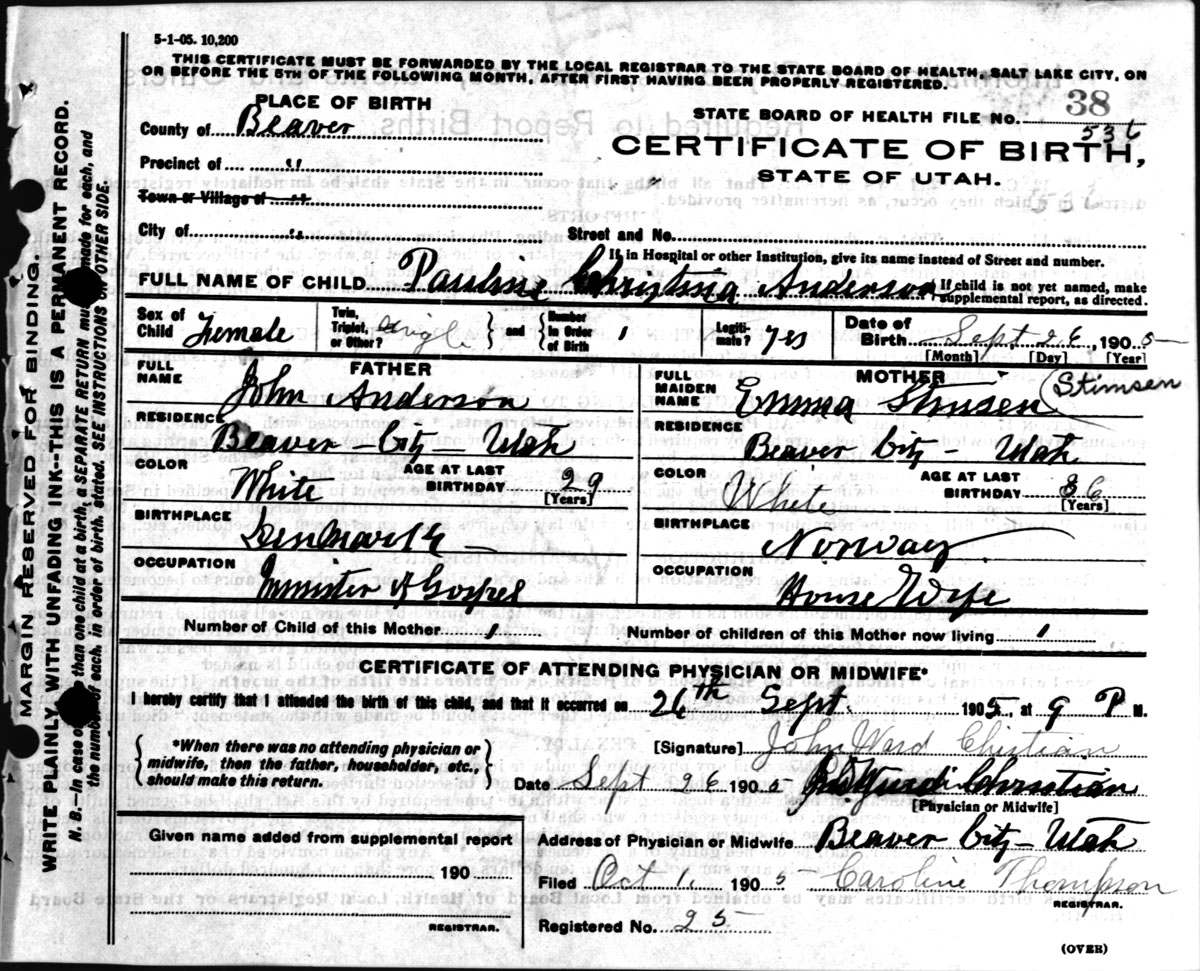 5-1-05. 10,200
THIS CERTIFICATE MUST BE FORWARDED BY THE LOCAL REGISTRAR TO THE STATE BOARD OF HEALTH, SALT LAKE CITY, ON
OR BEFORE THE 5TH OF THE FOLLOWING MONTH, AFTER FIRST HAVING BEEN PROPERLY REGISTERED.
MARGIN RESERVED FOR BINDING.
WRITE PLAINLY, WITH UNFADING INK--THIS IS A PERMANENT RECORD.
N. B.--In case of more than one child at a birth, a SEPARATE RETURN must be made for each, and
the number of each, in order of birth, stated. SEE INSTRUCTIONS ON OTHER SIDE.
PLACE OF BIRTH
County of Beaver
Precinct of "
Town or Village of "
City of "
38
STATE BOARD OF HEALTH FILE No. 536
CERTIFICATE OF BIRTH,
STATE OF UTAH.
Street and No.
If in Hospital or other Institution, give its name instead of Street and number.
FULL NAME OF CHILD Pauline Christina Anderson
If child is not yet named, make
supplemental report, as directed.
Sex of Child Female
Twin, Triplet, or Other? Single
and
Number in Order of Birth 1
Legiti-mate? Yes
Date of Birth Sept 26, 1905
[Month] [Day] [Year]
FATHER
FULL NAME John Anderson
RESIDENCE
Beaver City - Utah
COLOR White
AGE AT LAST BIRTHDAY 29
[Years]
BIRTHPLACE
Denmark
OCCUPATION
Minister of Gospel
MOTHER
FULL MAIDEN NAME Emma Stimsen (Stimsen
RESIDENCE
Beaver City - Utah
COLOR White
AGE AT LAST BIRTHDAY 36
[Years]
BIRTHPLACE
Norway
OCCUPATION
House Wife
Number of Child of this Mother 1
Number of children of this Mother now living 1
CERTIFICATE OF ATTENDING PHYSICIAN OR MIDWIFE*
I hereby certify that I attended the birth of this child, and that it occurred on 26th Sept. 1905, at 9 P M.
*When there was no attending physician or
midwife, then the father, householder, etc.,
should make this return.
[Signature] John Ward Chistian
Date Sept 26 1905 Christian
[Physician or Midwife]
Given name added from supplemental report
190
REGISTRAR.
Address of Physician or Midwife Beaver City - Utah
Filed Oct 1, 1905 Caroline Thompson
REGISTRAR.
Registered No. 25
(OVER)